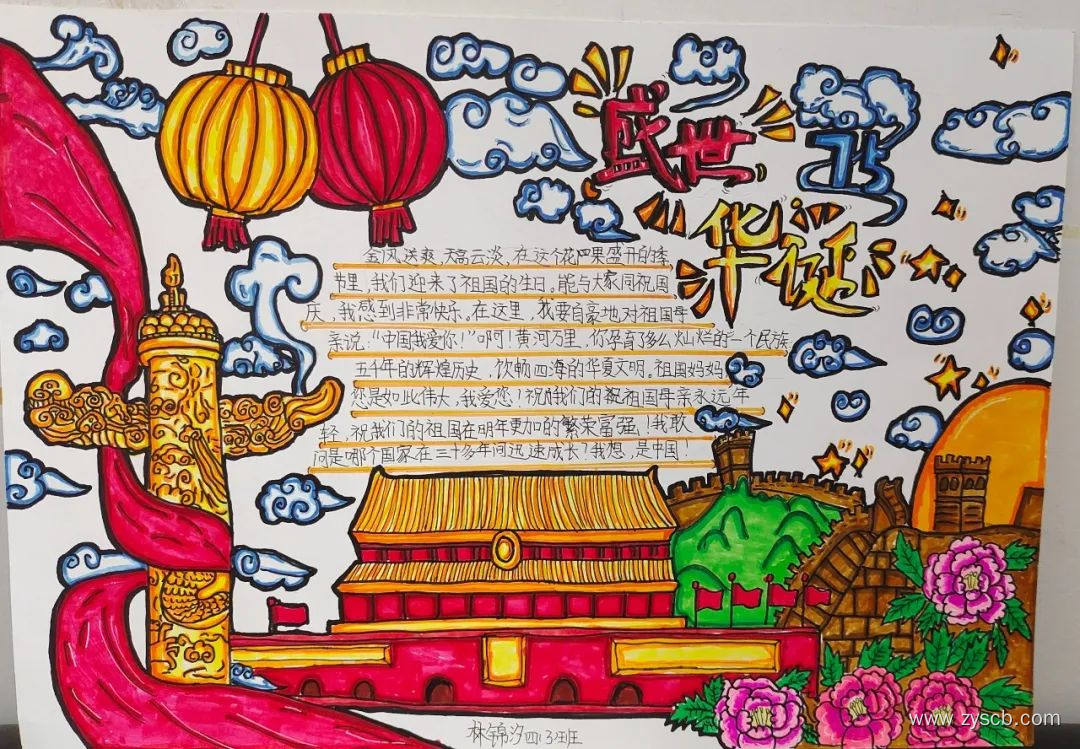 盛世
75
华诞
金风送爽，天高云淡，在这个花四果盛开的季
节里，我们迎来了祖国的生日。能与大家同祝国
庆，我感到非常快乐。在这里，我要自豪地对祖国母
亲说："中国我爱你！"啊！黄河万里，你孕育了多么灿烂的一个民族
五千年的辉煌历史，饮畅四海的华夏文明。祖国妈妈
您是如此伟大，我爱您！祝我们的祝祖国母亲永远年
轻，祝我们的祖国在明年更加的繁荣富强！我敢
问是哪个国家在三十多年间迅速成长？我想，是中国！
林锦汐四（3）班
www.zyscb.com